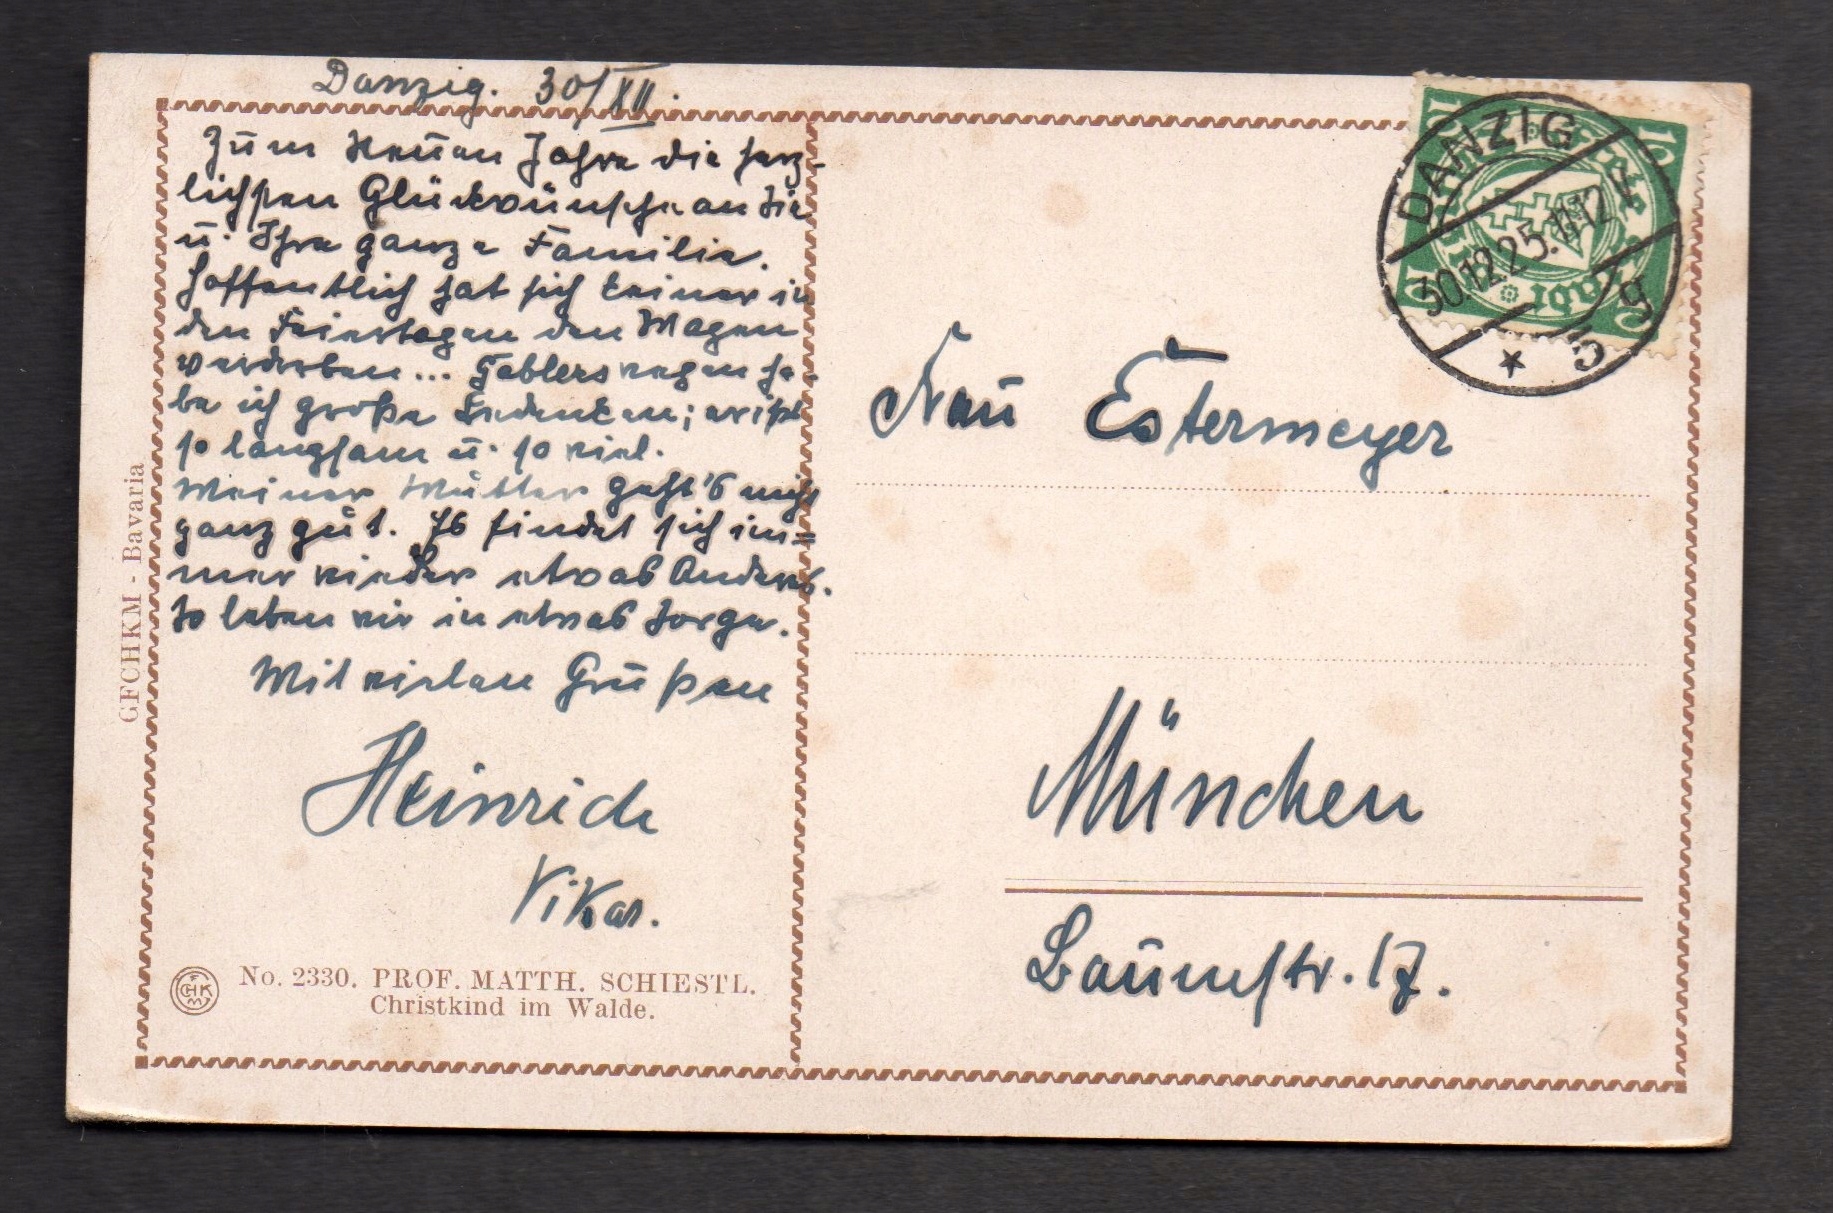 Danzig. 30/XII.
Zum Neuen Jahre die herz-
lichsten Glückwünsche an Sie
u. Ihre ganze Familie.
Hoffentlich hat sich keiner in
den Feiertagen den Magen
verdorben... Gablers wegen ha-
be ich große Bedenken; er ißt
so langsam u. so viel.
Meiner Mutter geht's nicht
ganz gut. Es findet sich im=
mer wieder etwas Anderes.
So leben wir in etwas Sorge.
Mit vielen Grüßen
Heinrich
Vikar.
GFCHKM - Bavaria
No. 2330. PROF. MATTH. SCHIESTL.
Christkind im Walde.
DANZIG
30.12.25. 11-12 V
5 c
10 10
Frau Estermeyer
München
Baumstr. 17.